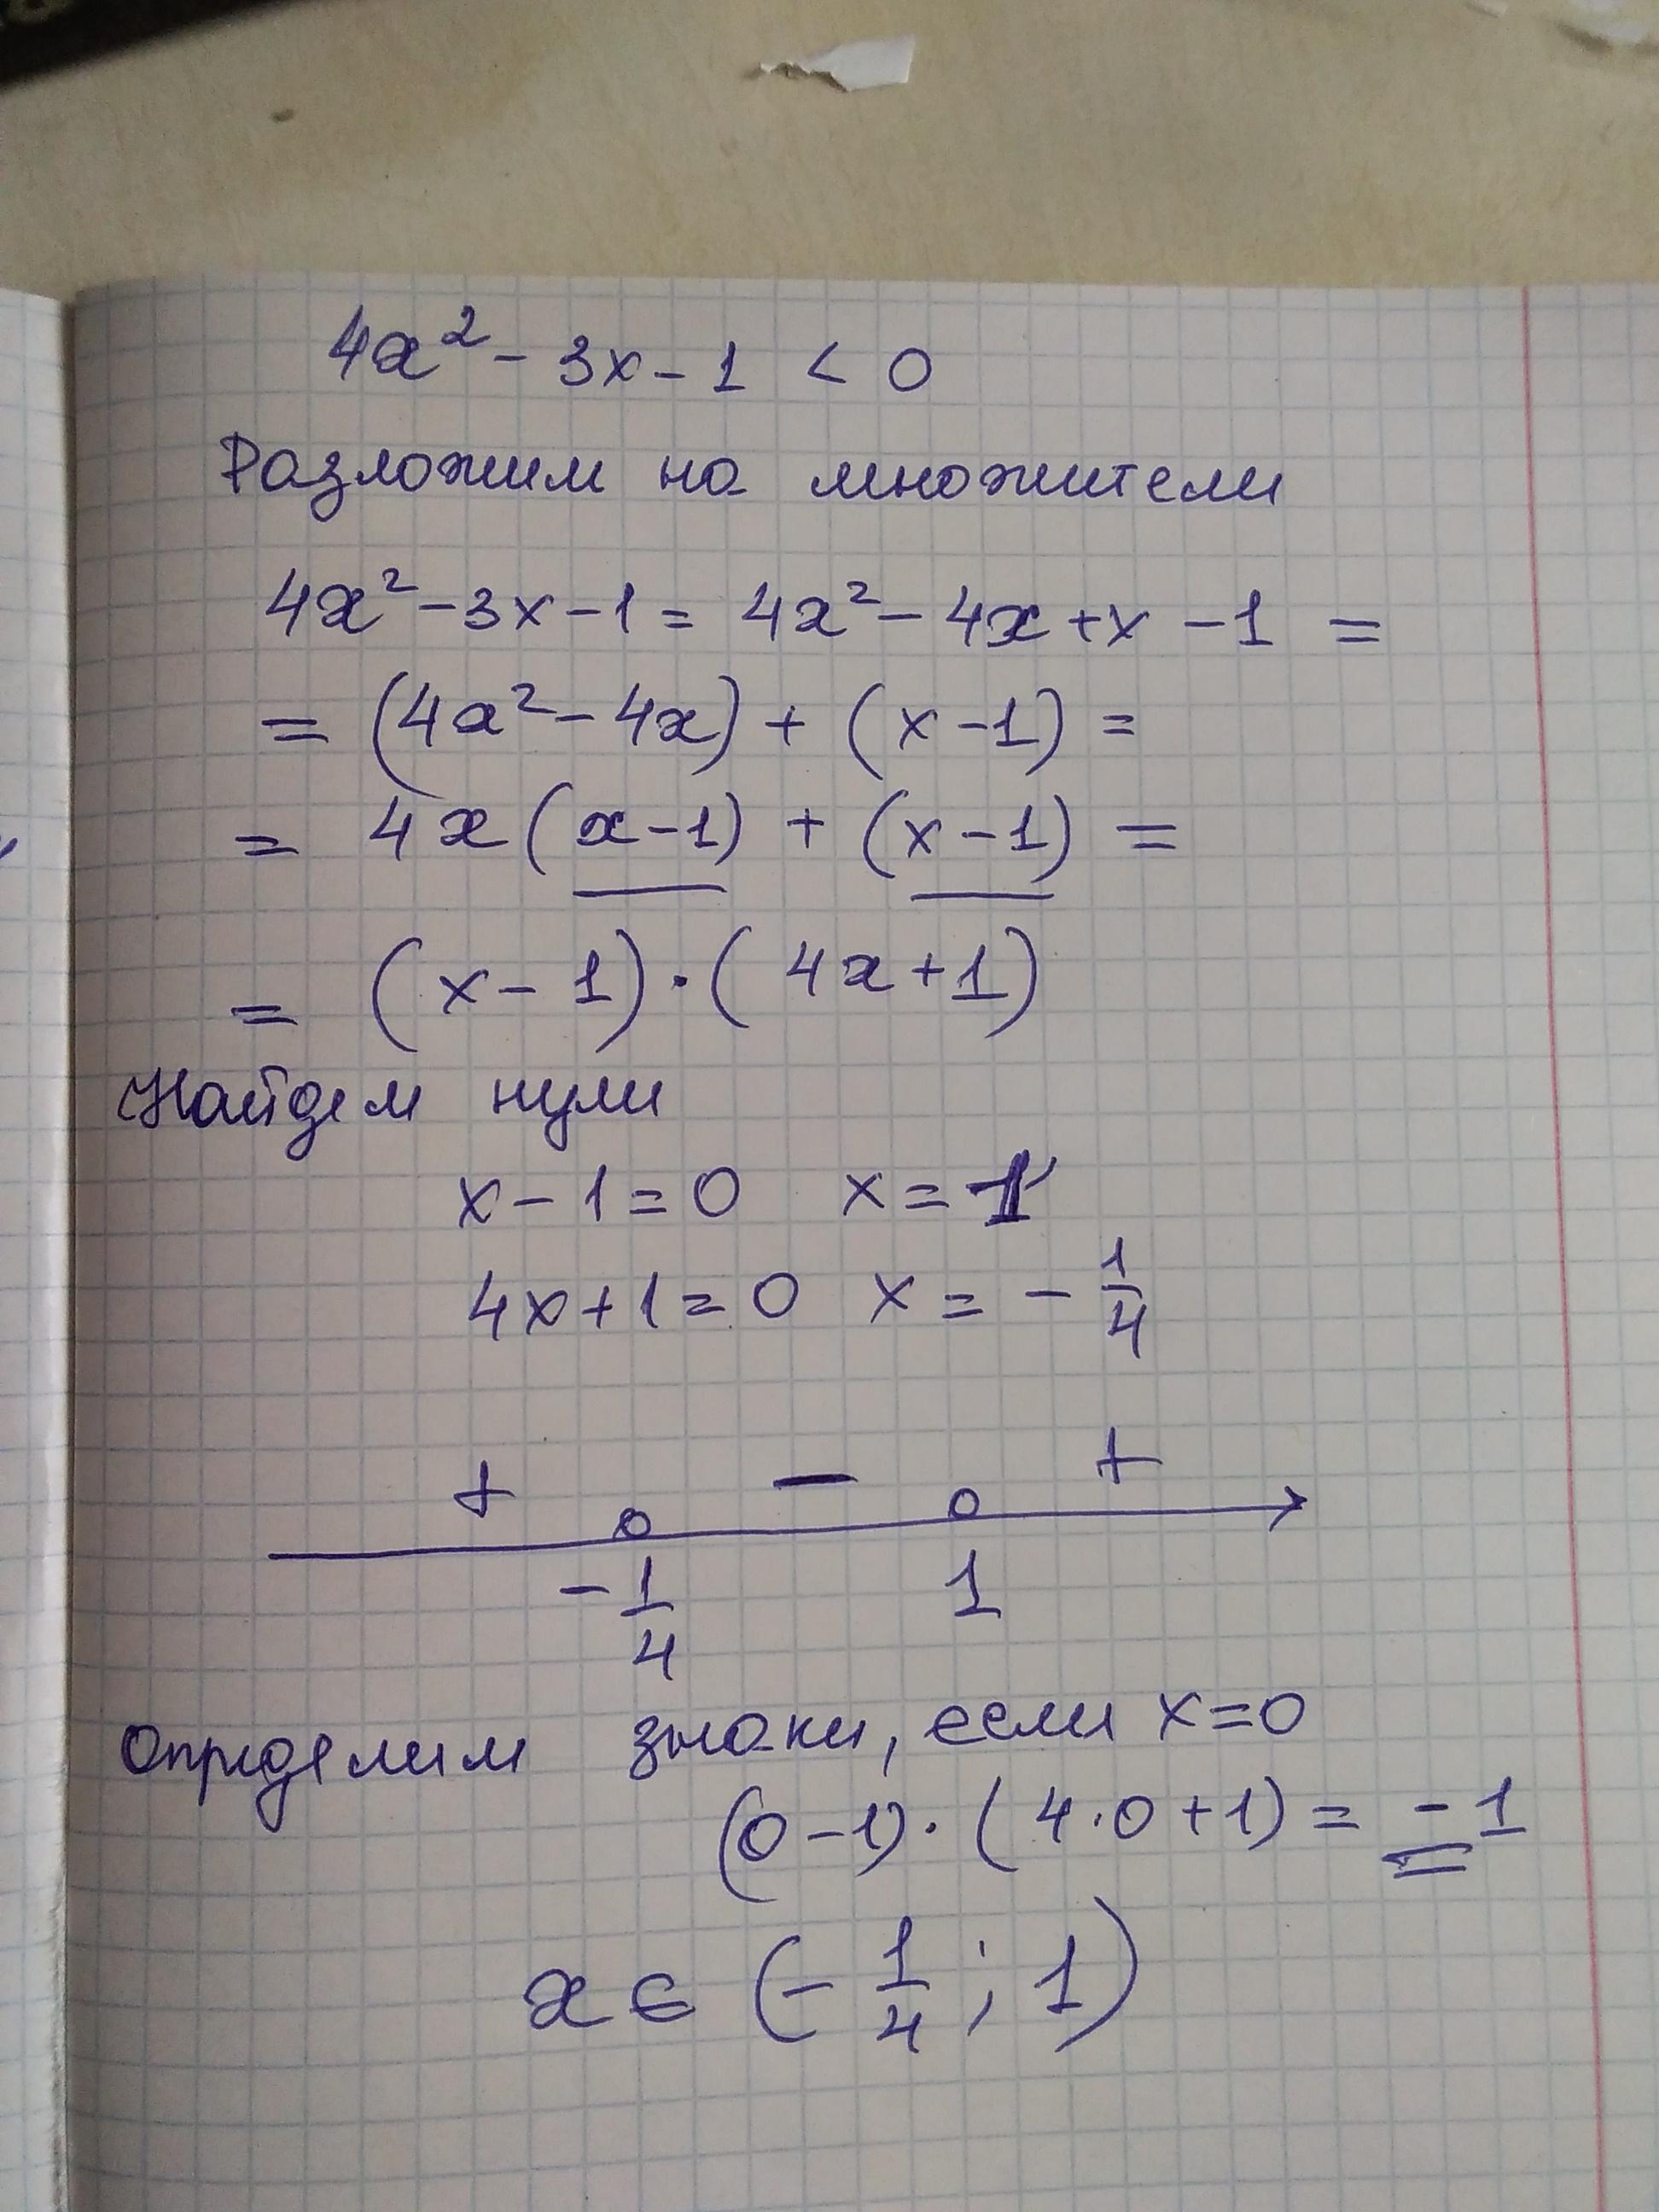 4x² - 3x - 1 < 0
Разложим на множители
4x² - 3x - 1 = 4x² - 4x + x - 1 =
= (4x² - 4x) + (x - 1) =
= 4x(x - 1) + (x - 1) =
= (x - 1) · (4x + 1)
Найдем нули
x - 1 = 0 x = 1
4x + 1 = 0 x = - 1/4
+ − +
- 1/4 1
Определим знаки, если x = 0
(0 - 1) · (4 · 0 + 1) = - 1
x ∈ (- 1/4 ; 1)